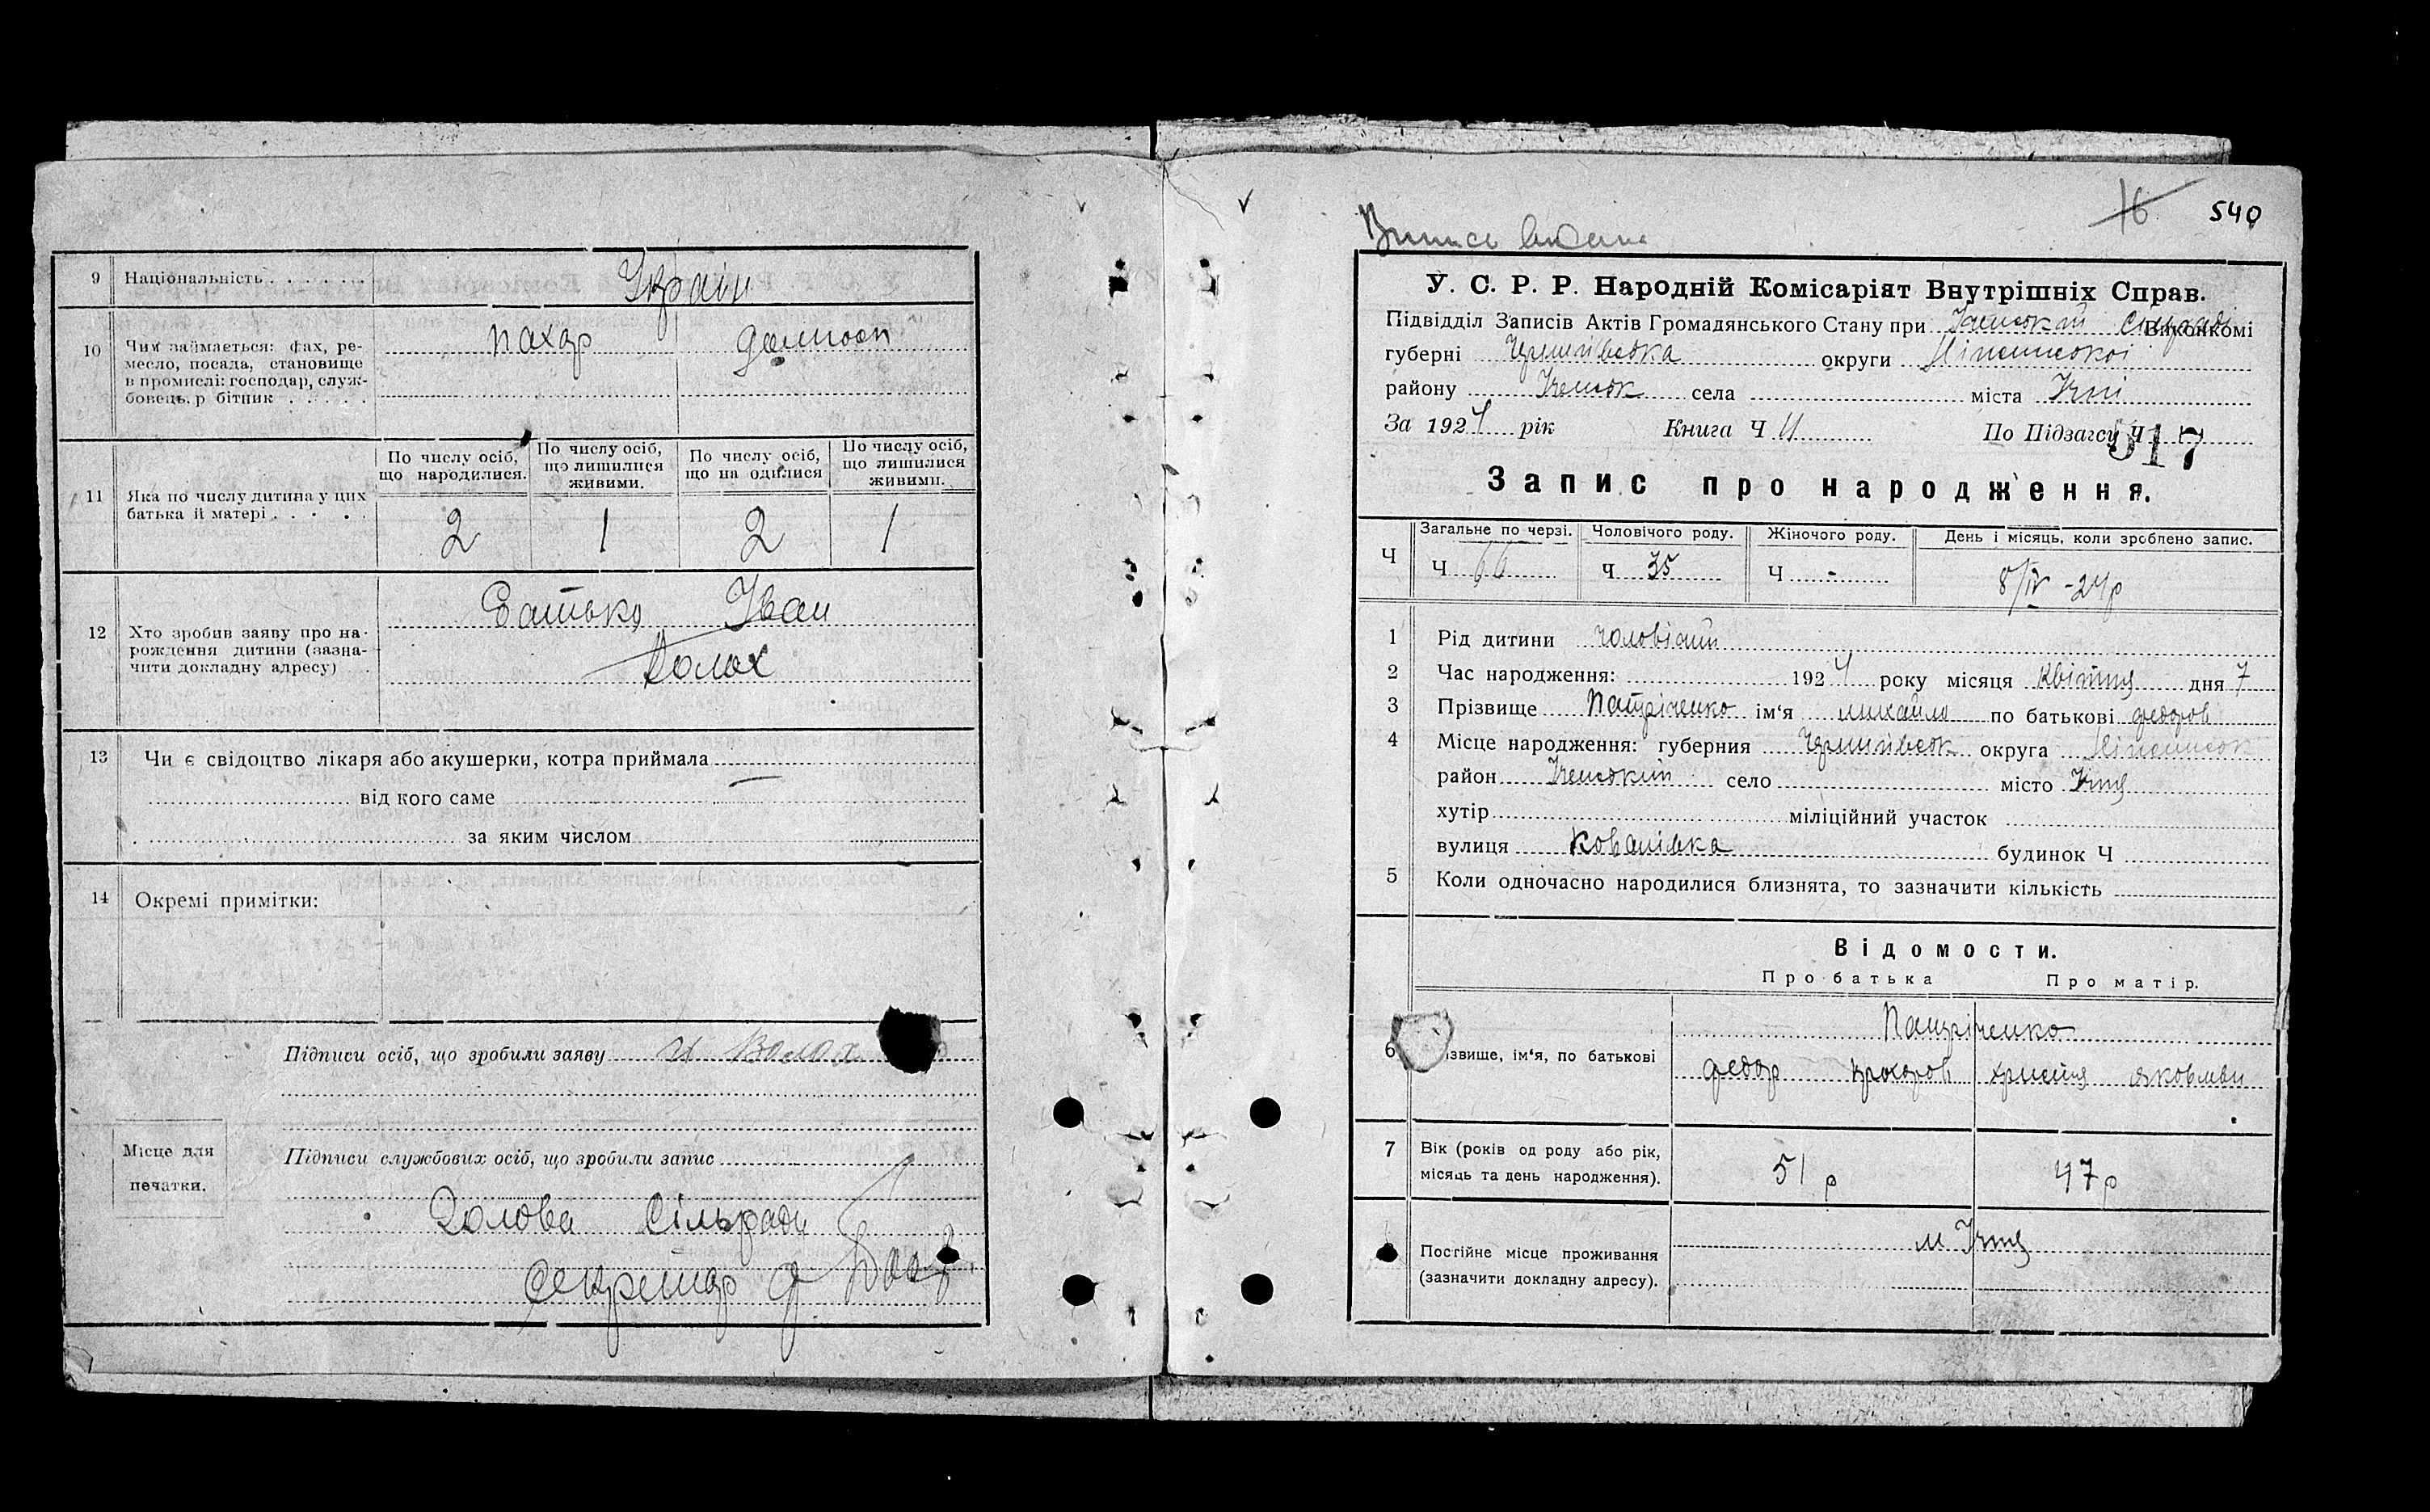 9 Національність . . . . . . .
Україн
10 Чим займається: фах, ре-
месло, посада, становище
в промислі: господар, служ-
бовець, р бітник . . . . .
пахар
домгосп
11 Яка по числу дитина у цих
батька й матері . . . . .
По числу осіб,
що народилися.
По числу осіб,
що лишилися
живими.
По числу осіб,
що на одилися
По числу осіб,
що лишилися
живими.
2 1 2 1
12 Хто зробив заяву про на-
рождення дитини (зазна-
чити докладну адресу)
Батько Іван
Волох
13 Чи є свідоцтво лікаря або акушерки, котра приймала —
від кого саме
за яким числом
14 Окремі примітки:
Підписи осіб, що зробили заяву И Волох
Місце для
печатки.
Підписи службових осіб, що зробили запис
Голова Сільради
Секретар
16 540
Випись видана
У. С. Р. Р. Народній Комісаріят Внутрішніх Справ.
Підвідділ Записів Актів Громадянського Стану при Іченській Сільраді Виконкомі
губерні Чернигівська округи Ніженської
району Іченськ села міста Ічні
За 1924 рік Книга Ч II По Підзагсу Ч 517
Запис про народження.
Ч
Загальне по черзі. Чоловічого роду. Жіночого роду. День і місяць, коли зроблено запис.
Ч 66 Ч 35 Ч - 8/IV -24р
1 Рід дитини чоловічий
2 Час народження: 1924 року місяця Квітня дня 7
3 Прізвище Патріченко ім'я михайло по батькові федоров
4 Місце народження: губерния Чернигівськ округа Ніженськ
район Іченский село місто Ічня
хутір міліційний участок
вулиця Ковалівка будинок Ч
5 Коли одночасно народилися близнята, то зазначити кількість
Відомости.
Про батька Про матір.
Патріченко
6 ізвище, ім'я, по батькові
федор прохоров христя яковлівн
7 Вік (років од роду або рік,
місяць та день народження).
51 р 47 р
Постійне місце проживання
(зазначити докладну адресу).
м Ічня